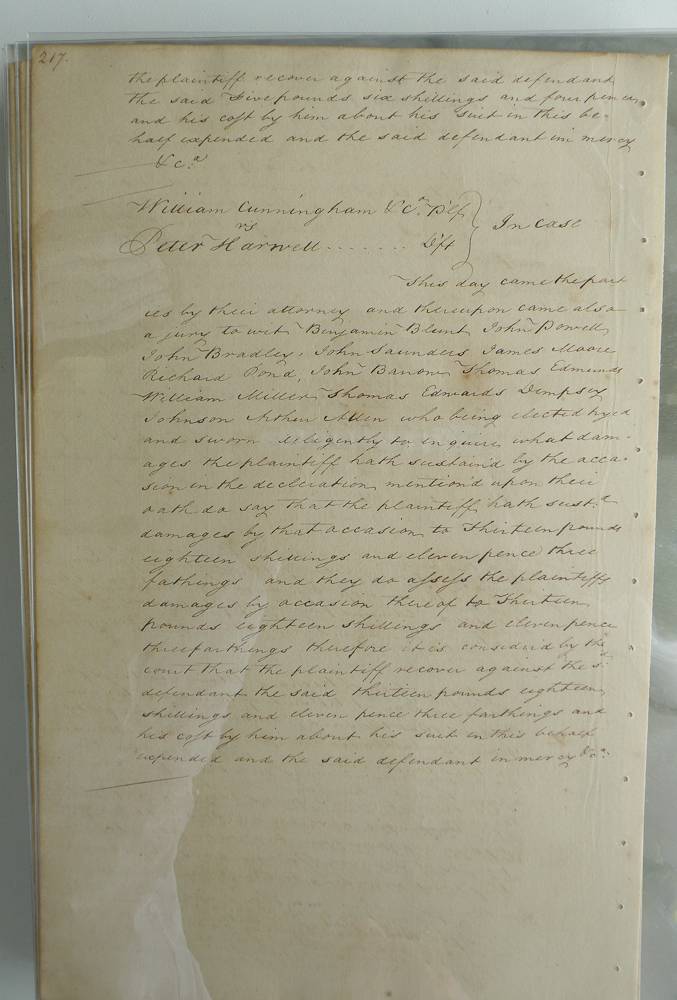 217.
the plaintiff recover against the said defendant
the said Five pounds six shillings and four pence
and his cost by him about his suit in this be-
half expended and the said defendant in mercy
&c.a
William Cunningham & Co. Plf
vs
Peter Harwell ....... Dft
In Case
This day came the part
ies by their attorney and thereupon came also
a jury to wit Benjamin Blunt John Powell
John Bradley, John Saunders James Moore
Richard Pond, John Barrow Thomas Edmunds
William Miller Thomas Edwards Dempsey
Johnson Arthur Allen who being elected tryed
and sworn diligently to inquire what dam-
ages the plaintiff hath sustain'd by the acca-
sion in the decleration mention'd upon their
oath do say that the plaintiff hath sust.d
damages by that occasion to Thirteen pounds
eighteen shillings and eleven pence three
fathings and they do assess the plaintiffs
damages by occasion thereof to Thirteen
pounds eighteen shillings and eleven pence
three farthings therefore it is considred by the
court that the plaintiff recover against the s.d
defendant the said thirteen pounds eighteen
shillings and eleven pence three farthings and
his cost by him about his suit in this behalf
expended and the said defendant in mercy &c.a